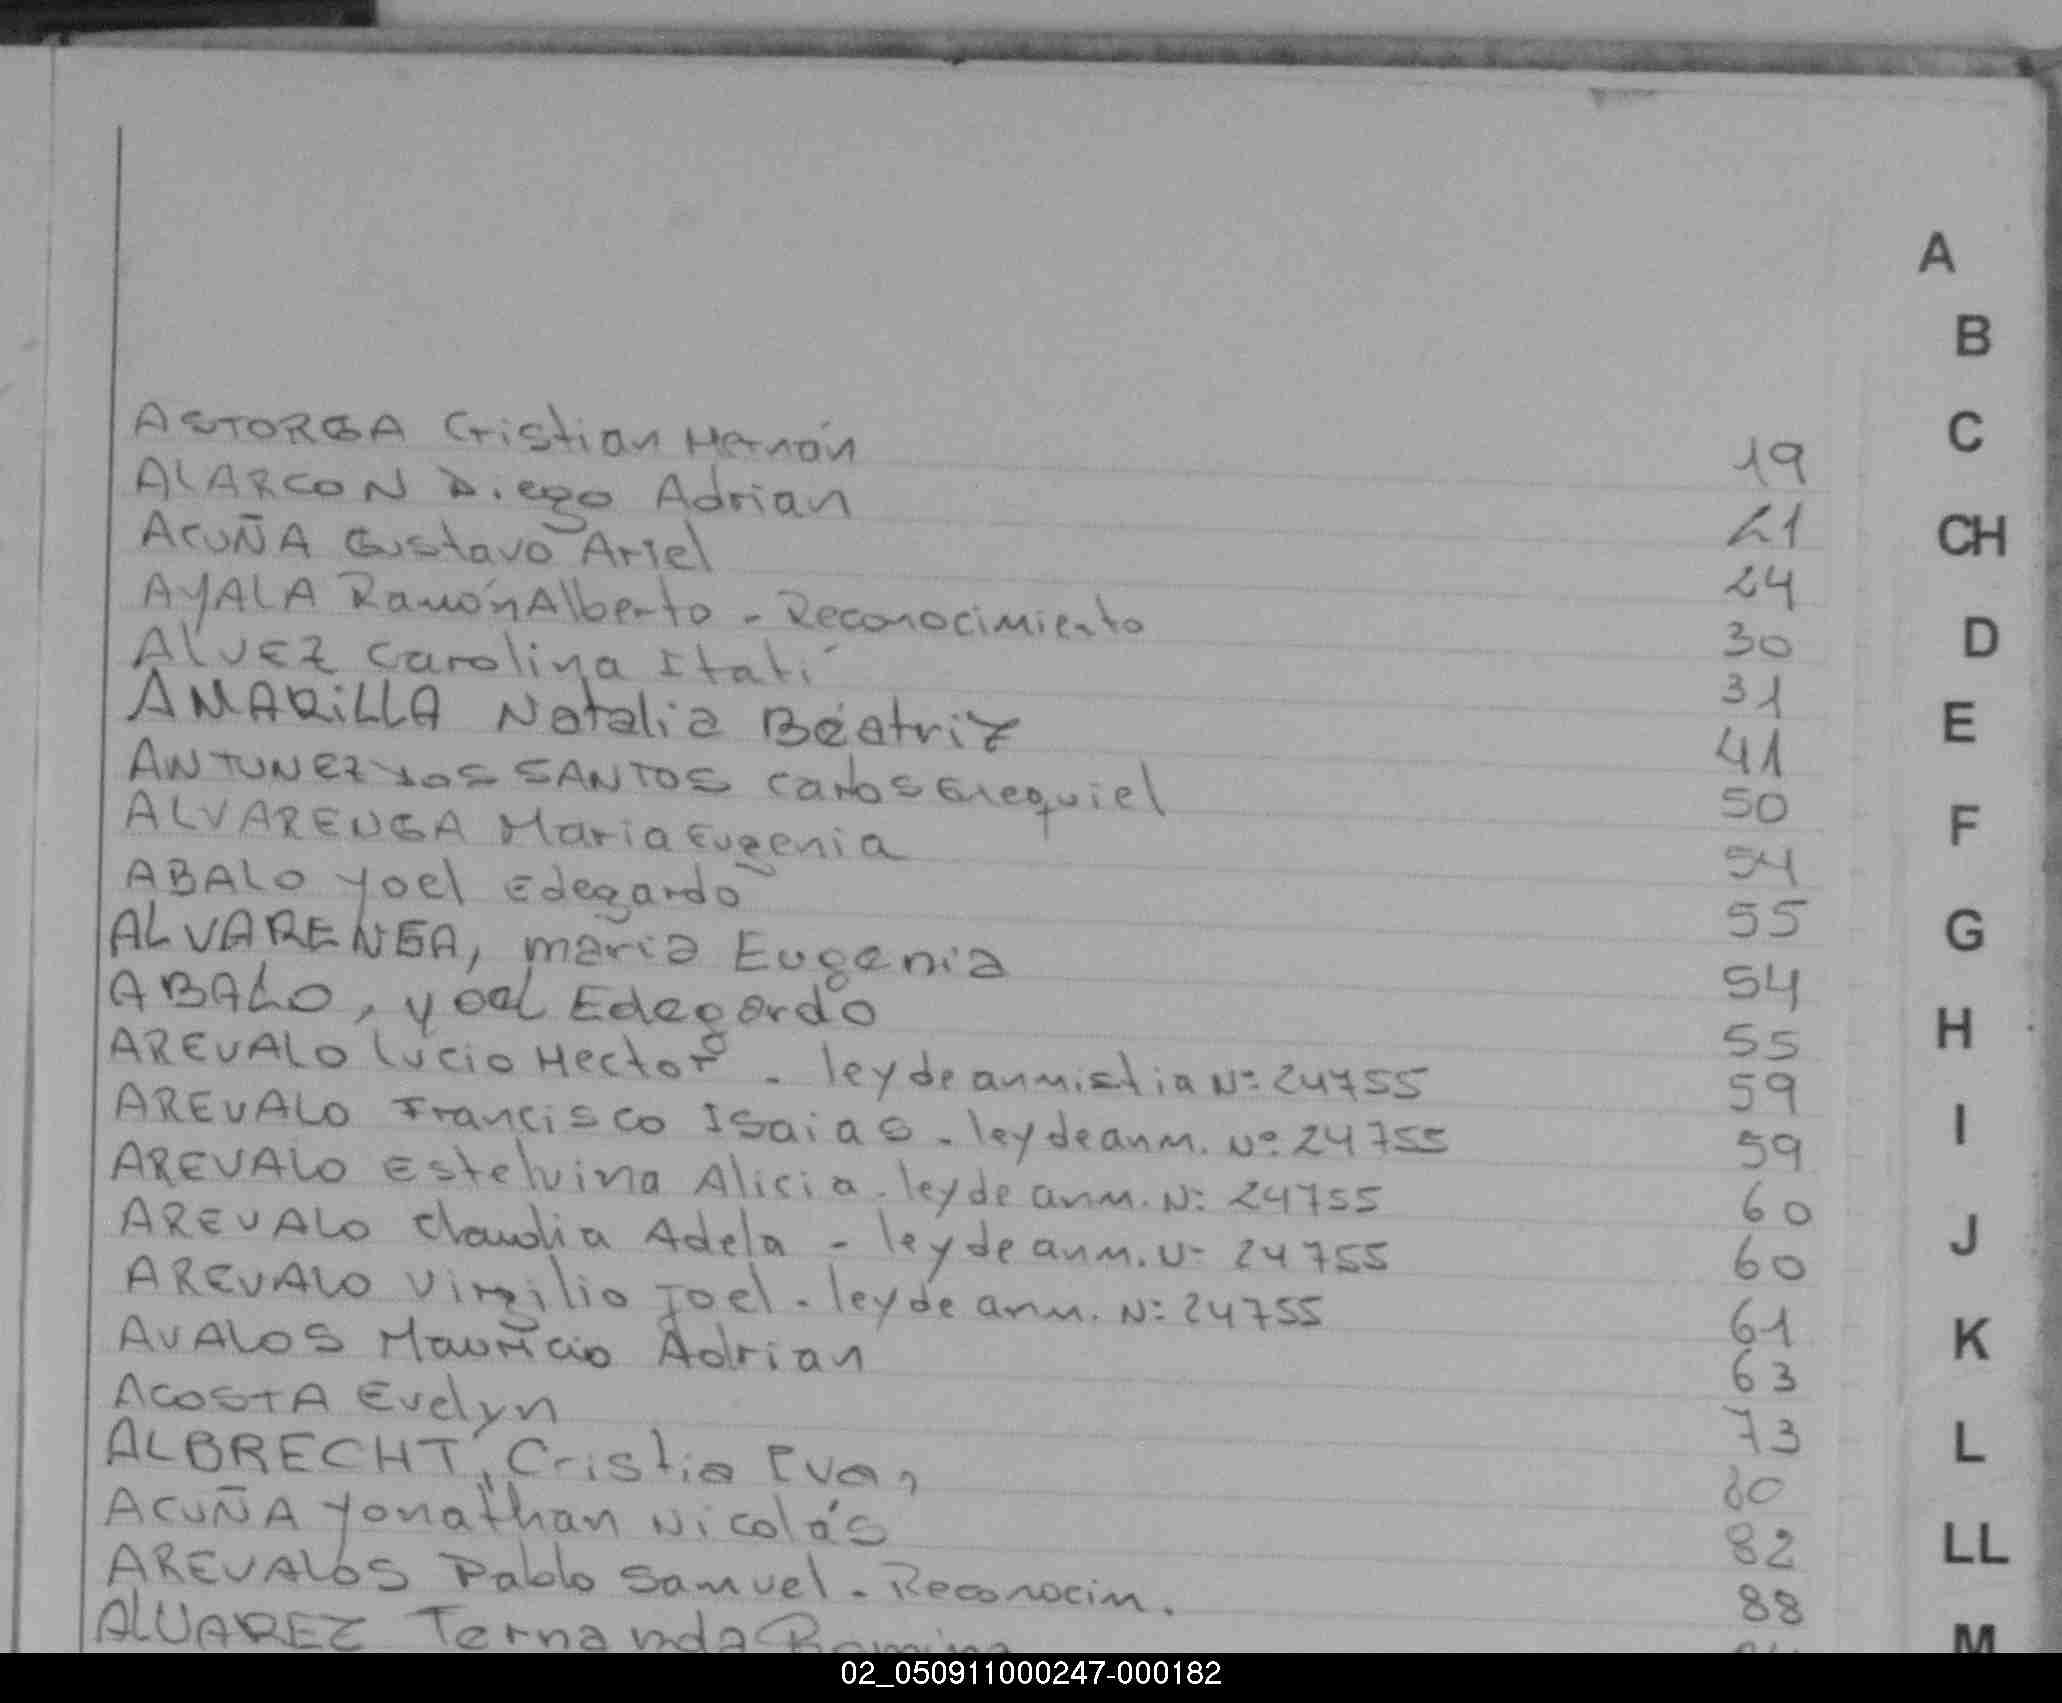 A
B
C
ASTORGA Cristian Hernán 19
ALARCON Diego Adrian 21
CH
ACUÑA Gustavo Ariel 24
AYALA Ramón Alberto - Reconocimiento 30
D
ALVEZ Carolina Itatí 31
AMARILLA Natalia Beatriz 41
E
ANTUNEZ dos SANTOS Carlos Exequiel 50
ALVARENGA Maria Eugenia 54
F
ABALO Yoel Edegardo 55
ALVARENGA, maria Eugenia 54
G
ABALO, yoel Edegardo 55
AREVALO Lucio Hector - ley de anmistia Nº 24755 59
H
AREVALO Francisco Isaias - ley de anm. Nº 24755 59
I
AREVALO Estelvina Alicia - ley de anm. Nº 24755 60
AREVALO Claudia Adela - ley de anm. Nº 24755 60
J
AREVALO Virgilio Joel - ley de anm. Nº 24755 61
AVALOS Mauricio Adrian 63
K
ACOSTA Evelyn 73
L
ALBRECHT, Cristia Eva, 80
ACUÑA Yonathan Nicolás 82
LL
AREVALOS Pablo Samuel - Reconocim. 88
ALVAREZ Fernanda Romina
M
02_050911000247-000182